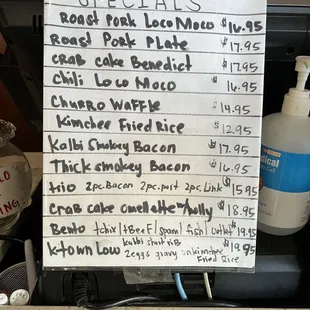 SPECIALS
Roast Pork Loco Moco $16.95
Roast Pork Plate $17.95
Crab Cake Benedict $17.95
Chili Loco Moco $16.95
Churro Waffle $14.95
Kimchee Fried Rice $12.95
Kalbi Smokey Bacon $17.95
Thick Smokey Bacon $16.95
trio 2pc.Bacon 2pc.port 2pc.Link $15.95
Crab cake omellette w/holly $18.95
Bento tchix/tBeef/spam/fish/ $19.95
K-town Low kalbi short rib $19.95
2eggs gravy kimchee
Fried Rice